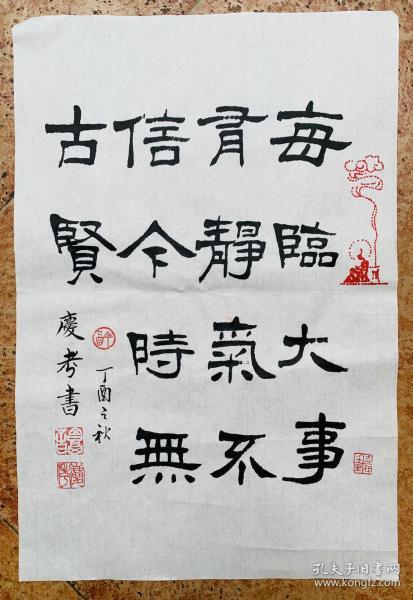 每臨大事
有靜氣不
信今時無
古賢
丁酉之秋
慶考書
孔夫子旧书网
www.kongfz.com